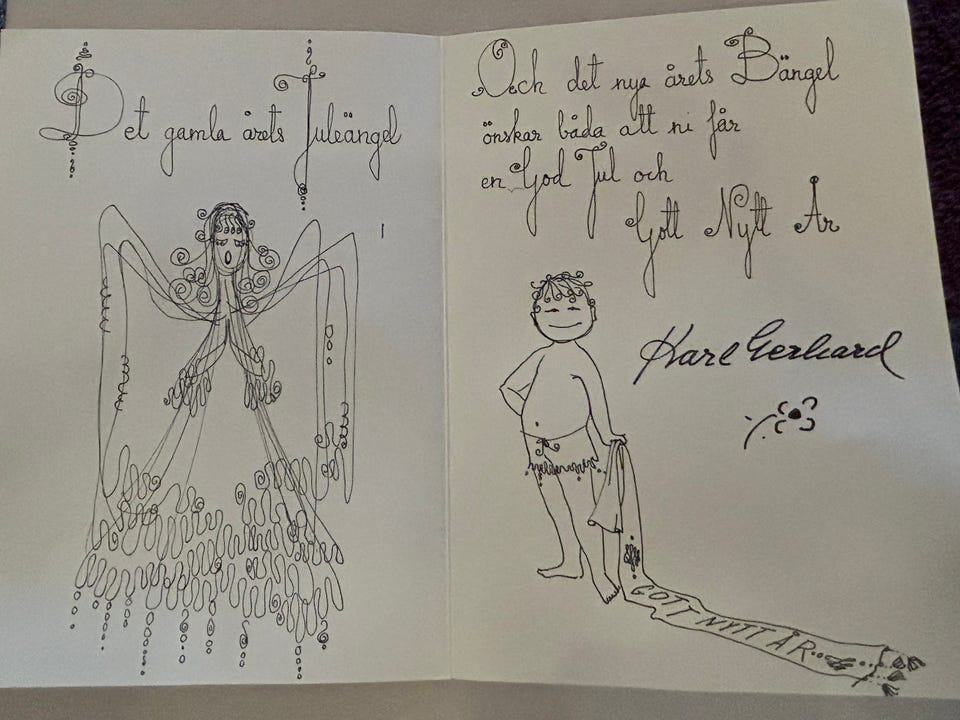 Det gamla årets Juleängel
Och det nya årets Bängel
önskar båda att ni får
en God Jul och
Gott Nytt År
Karl Gerhard
GOTT NYTT ÅR